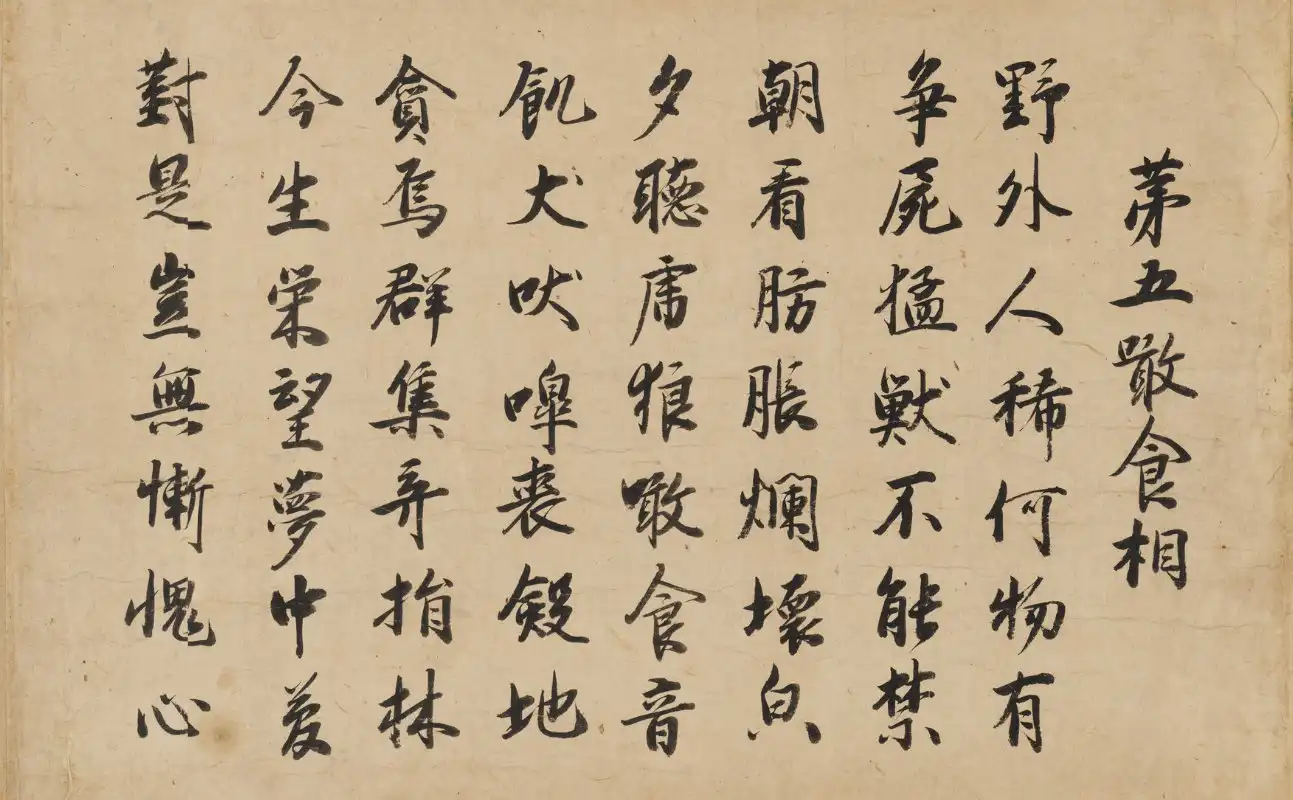 苐五噉食相
野外人稀何物有
争屍猛獣不能禁
朝看肪脹爛壞㒵
夕聴虎狼噉食音
飢犬吠嘷喪斂地
貪烏群集弃捐林
今生栄望夢中夢
對是豈無慚愧心